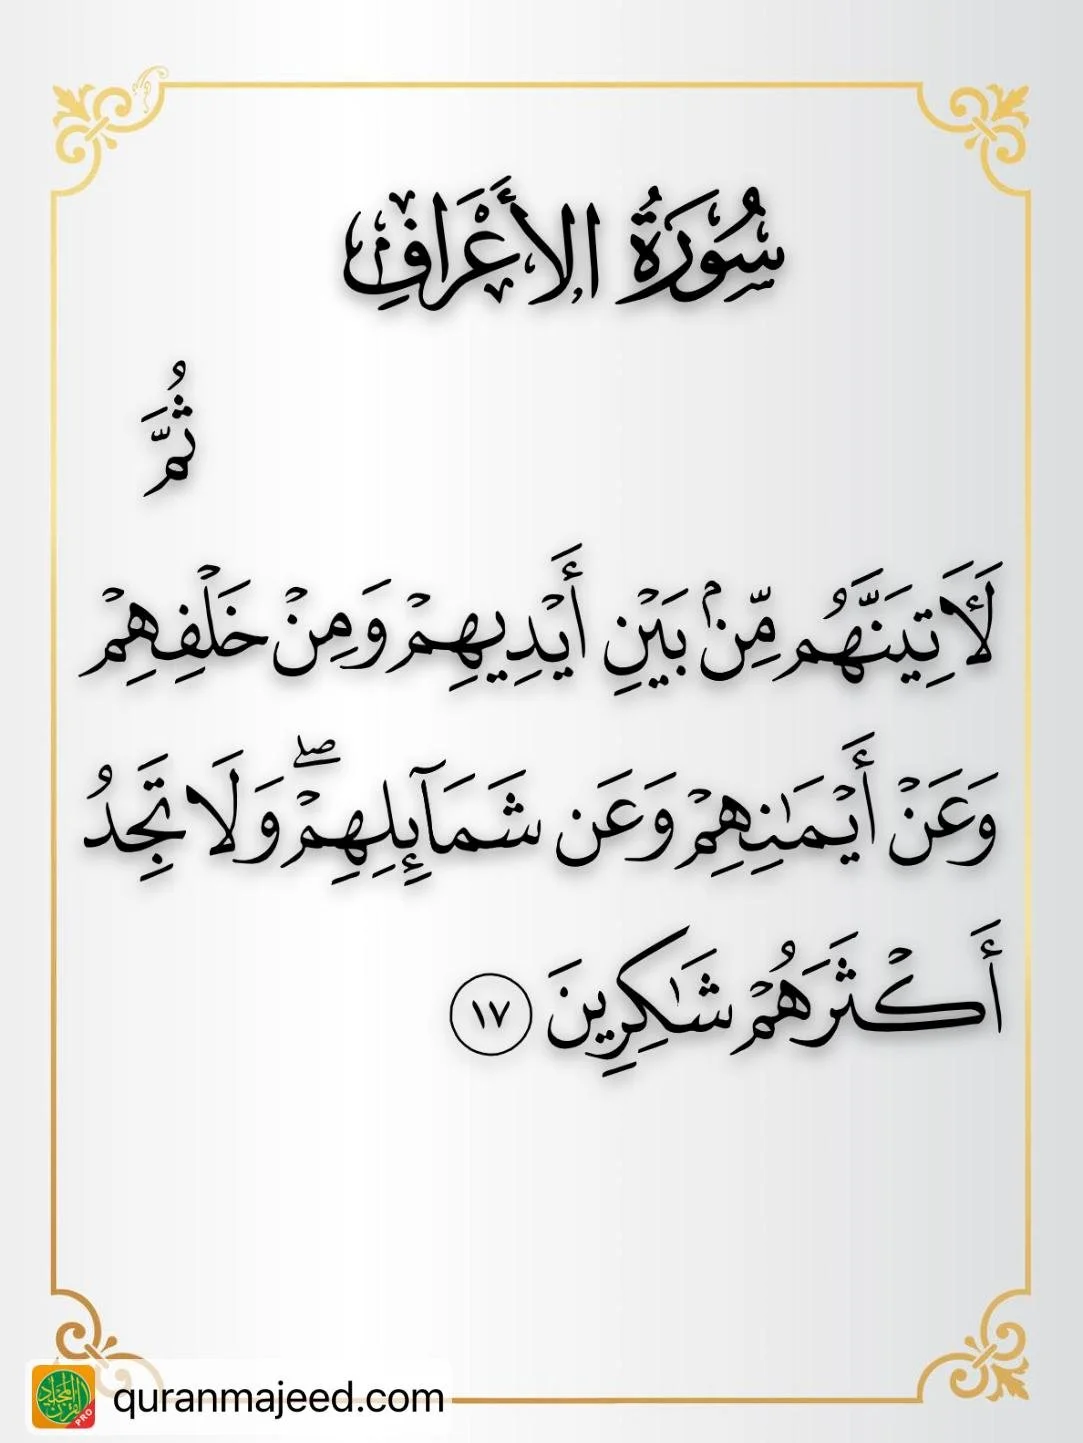 سُورَةُ الأَعْرَافِ
ثُمَّ
لَأَتِيَنَّهُم مِّنۢ بَيْنِ أَيْدِيهِمْ وَمِنْ خَلْفِهِمْ
وَعَنْ أَيْمَٰنِهِمْ وَعَن شَمَآئِلِهِمْ ۖ وَلَا تَجِدُ
أَكْثَرَهُمْ شَٰكِرِينَ ١٧
quranmajeed.com